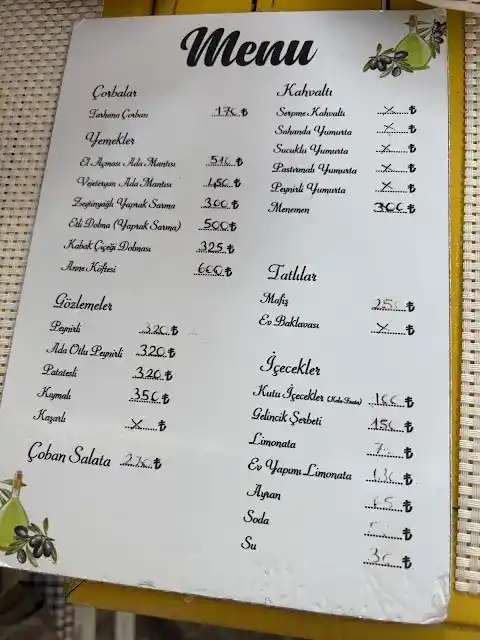 Menu
Çorbalar
Tarhana Çorbası 170 ₺
Yemekler
Et Açması Ada Mantısı ₺
Vejeteryan Ada Mantısı 450 ₺
Zeytinyağlı Yaprak Sarma 300 ₺
Etli Dolma (Yaprak Sarma) 500 ₺
Kabak Çiçeği Dolması 325 ₺
Anne Köftesi 600 ₺
Gözlemeler
Peynirli 320 ₺
Ada Otlu Peynirli 320 ₺
Patatesli 320 ₺
Kıymalı 350 ₺
Kaşarlı X ₺
Çoban Salata ₺
Kahvaltı
Serpme Kahvaltı X ₺
Sahanda Yumurta X ₺
Sucuklu Yumurta X ₺
Pastırmalı Yumurta X ₺
Peynirli Yumurta X ₺
Menemen 300 ₺
Tatlılar
Mafiş 250 ₺
Ev Baklavası X ₺
İçecekler
Kutu İçecekler 100 ₺
Gelincik Şerbeti 150 ₺
Limonata ₺
Ev Yapımı Limonata 130 ₺
Ayran ₺
Soda ₺
Su 30 ₺